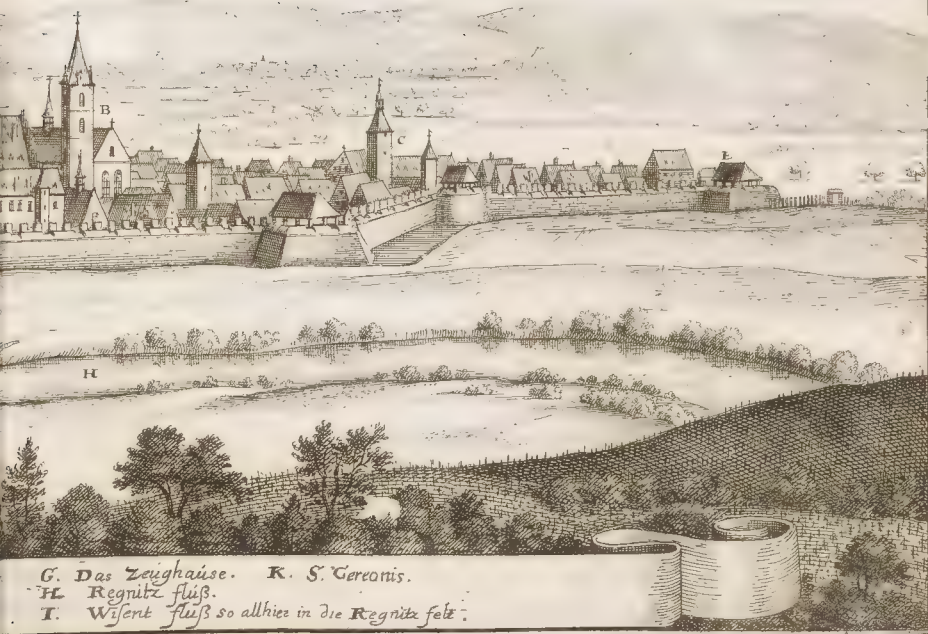 B
C
E
H
G. Das Zeüghause. K. S. Gereonis.
H. Regnitz flüß.
I. Wisent flüß so allhier in die Regnitz felt.